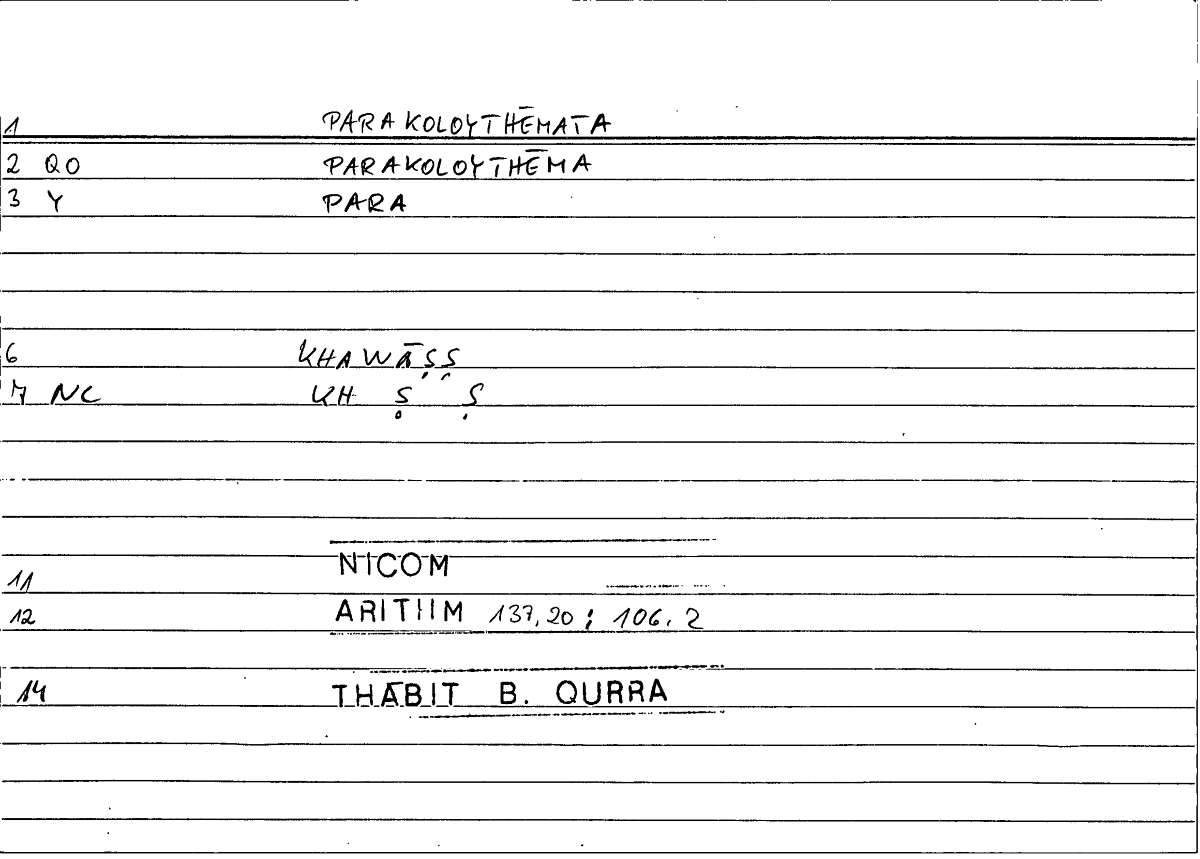 1 PARAKOLOYTHĒMATA
2 QO PARAKOLOYTHĒMA
3 Y PARA
6 KHAWĀṢṢ
7 NC KH Ṣ Ṣ
11 NICOM
12 ARITHM 137,20; 106.2
14 THĀBIT B. QURRA